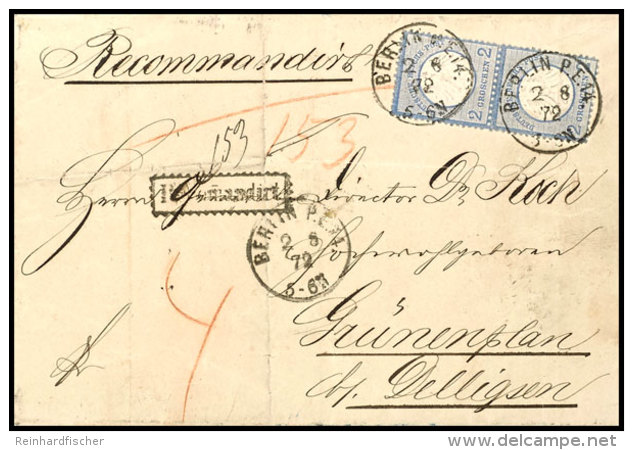 Recommandirt
BERLIN P.E.14.
2 8
72
5-6N
2 GROSCHEN 2
BERLIN P.E.14.
2 8
72
5-6N
2 GROSCHEN
153
153
Recommandirt
Herrn Director Dr. Koch
BERLIN P.E.14.
2 8
72
5-6N
Hochwohlgeboren
Grünenplan
bz. Delligsen
Reinhardfischer
delcampe.net